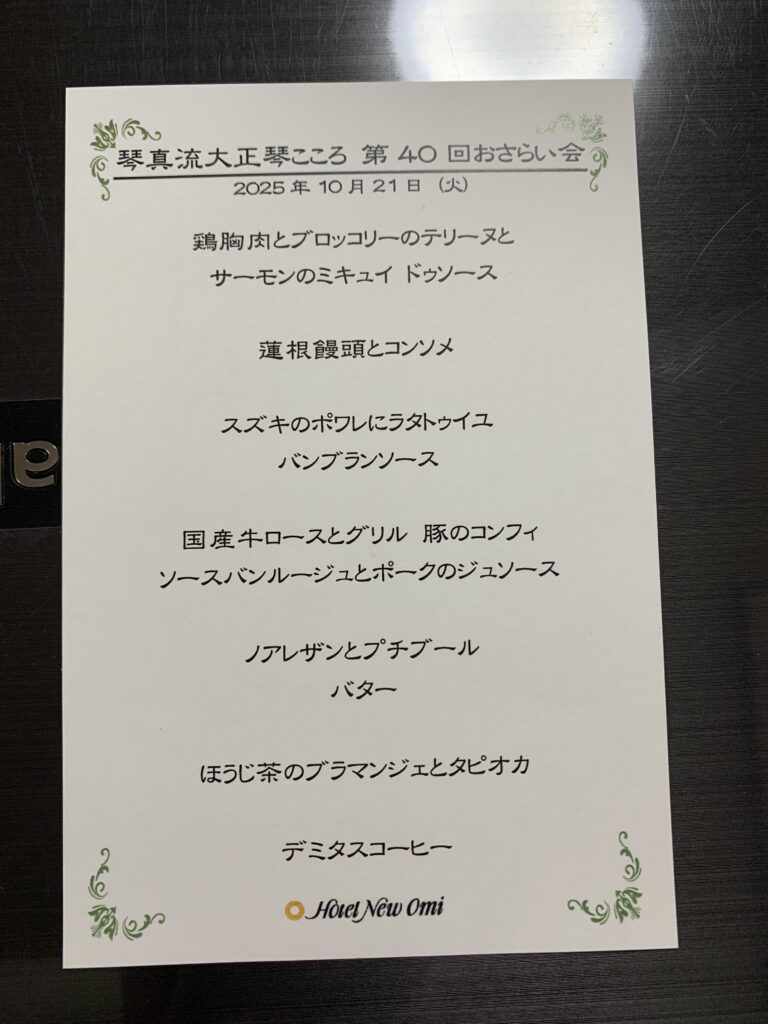 琴真流大正琴こころ 第40回おさらい会
2025年10月21日 (火)
鶏胸肉とブロッコリーのテリーヌと
サーモンのミキュイ ドゥソース
蓮根饅頭とコンソメ
スズキのポワレにラタトゥイユ
バンブランソース
国産牛ロースとグリル 豚のコンフィ
ソースバンルージュとポークのジュソース
ノアレザンとプチブール
バター
ほうじ茶のブラマンジェとタピオカ
デミタスコーヒー
Hotel New Omi